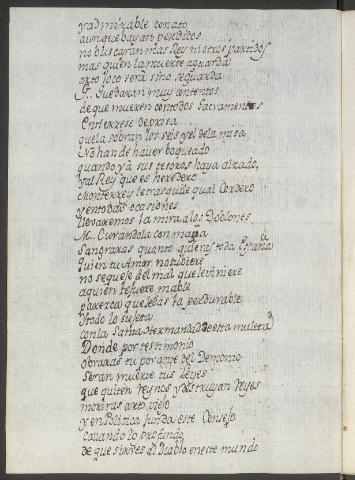 y admirable conato
aunque bayan perdidos
no buscaran mas Rey ni otros partidos
mas quien la muerte aguarda
arto loco será sino se guarda
J.. quedaran muy contentos
de que mueren con todos Sacramentos
Entierrese de prisa
que la sobran los seis y el de la misa
No han de haver boqueado
quando yà sus tesoros haya alzado,
y al Rey que es heredero
Monterrey le trasquile qual Cordero
y en todas ocasiones
llevaremos la mira a los Doblones
M.. Curandola con maña
Sangraras quanto quieras toda España
quien tu Amor no tubiere
no se quexe del mal que le viniere
a quien te fuere mable
parezca que le das la perdurable
y todo lo sujeta
con la Santa Hermandad de esta muleta
Donde por testimonio
obraras tu por arte del Demonio
Seran muerte tus Leyes
que quiten Reynos y destruyan Reyes
moriras arto viejo
y en Politica funda este Consejo
Cavando lo profundo
de que sirves al Diablo en este mundo